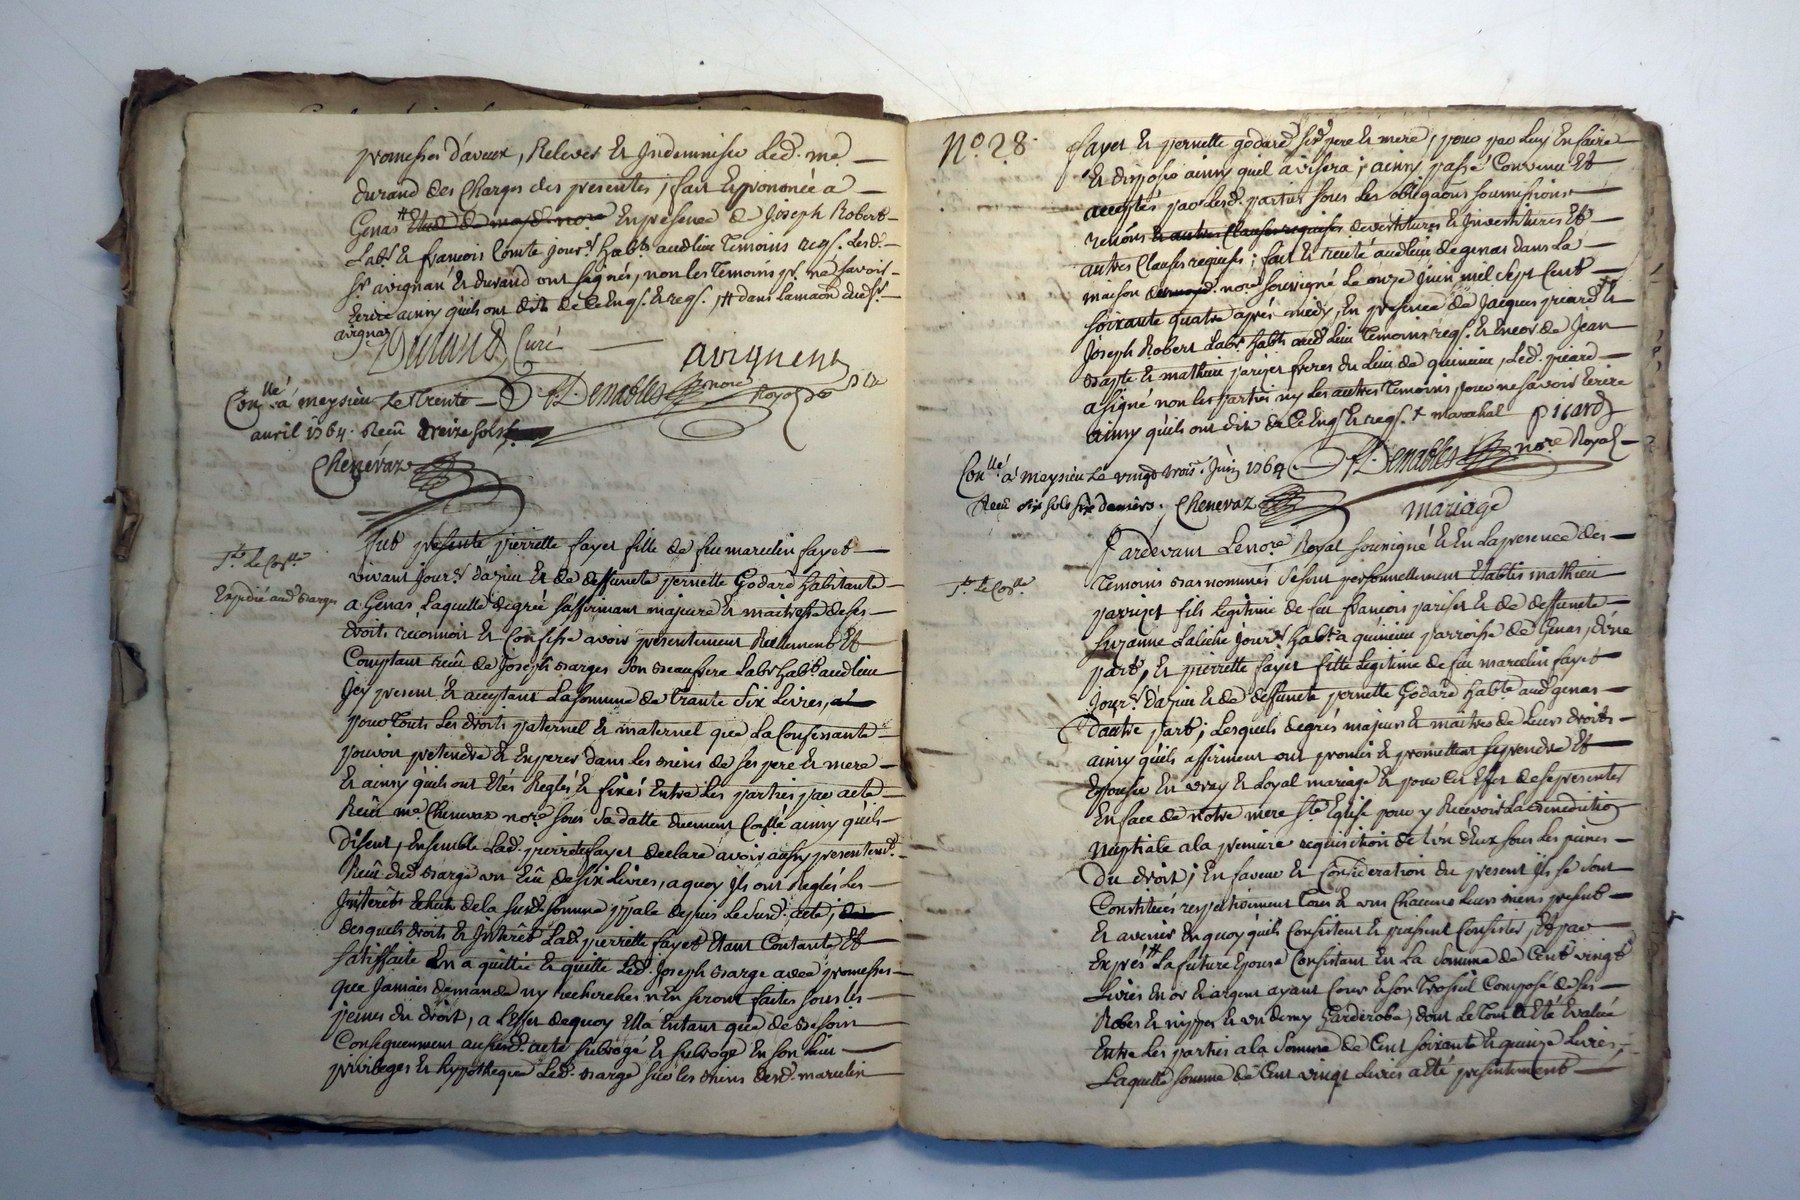 promesses d'aveux, Relever et Indemniser Led. me
durand des Charges des presentes, fait Et prononcé a
Genas # Etude de mond. nore En presence de Joseph Robert
Labr. et francois Comte jourr. habts. audlieu Temoins reqs. Lesd.
Sr avignan et durand ont signés, non les Temoins pr. ne savoir
Ecrire ainsy quils ont dit de ce Enqs. et reqs., # dans lamaon dud sr.
avignan
Durand Curé
avignent
Demables nore Royal
Conllé a meysieu Le trente
avril 1764. Recu treize sols
Chenevaz
fut presente pierrette fayet fille de feu marcelin fayet
vivant jourr. d'azieu et de deffuncte pernette Godard habitante
a Genas, Laquelle degrée saffirmant majeure et maitresse de ses
droits reconnoit et Confesse avoir presentement Reellement Et
Comptant recu de Joseph Barges son beaufrere Labr habt. audlieu
Jcy present et acceptant La somme de Trante Six Livres,
pour Touts Les droits paternel et maternel que La Confessante
pouvoit pretendre et Esperer dans Les biens de ses pere et mere
Et ainsy quils ont Etés Reglés et fixés Entre Les parties par acte
Recu me Chenevaz nore sous sa datte duement Conllé ainsy quils
Disent, Ensemble Lad. pierrette fayet declare avoir aussy presentemt.
Recu dud Barge un Ecu de six Livres, a quoy Ils ont Reglés Les
Jnterêts Echuts de la susd. somme ppale depuis Le susd. acte;
desquels droits et Jnterêts Lad. pierrette fayet Etant Contante Et
satisffaite En a quitté et quitte Led. Joseph Barge avec promesses
que Jamais demande ny recherches n'en seront faites sous les
peines du droit, a L'effet dequoy Ella Entant que de besoin
Consequemment au susd. acte subrogé et subroge En son lieu
privileges et hypotheques Led. Barge sur les biens desd. marcelin
Expedié aud Barges
No. 28.
fayet et pernette godard ses pere et mere, pour par Luy En faire
Et disposé ainsy quil avisera; ainsy passé Convenu Et
acceptés par Lesd. parties sous Les obligaons soumissions
renons et autres Clauses requises devestitures et Jnvestitures Et
autres Clauses requises; fait et recité audlieu de genas dans La
maison nore soussigné Le onze Juin mil Sept Cent
soixante quatre après midy, En presence de Jacques picard # et
Joseph Robert Labr. habts aud Lieu Temoins reqs. et Encor de Jean
Baptte et mathieu parizet freres du Lieu de quincieu, Led. picard
a signé non les parties ny Les autres Temoins pour ne savoir Ecrire
ainsy quils ont dit de ce Enqs et reqs. # marechal
picard
Demables nore Royal
Conllé a Meysieu Le vingt trois Juin 1764
Recu six sols six deniers. Chenevaz
Mariage
Pardevant Le nore Royal soussigné et En La presence des
Temoins bas nommés Se sont personnellement Etablis mathieu
parrizet fils Legitime de feu francois pariset et de deffuncte
Suzanne Laliche jourr. habt a quincieu parroisse de Genas, d'une
part, Et pierrette fayet fille Legitime de feu marcelin fayet
Jourr. d'azieu et de deffuncte pernette Godard habte aud genas
d'autre part; Lesquels degrés majeurs et maitres de Leurs droits
ainsy quils affirment ont promis et promettent se prendre Et
Epouser En vray et Loyal mariage et pour cet Effet de se presenter
En face de Notre mere Ste Eglise pour y Recevoir La Benediction
Nuptiale a la premiere requisition de L'un d'Eux sous les peines
Du droit; En faveur et Consideration du present ils se sont
Constitués respectivement Tous et uns Chacuns Leurs biens present
et avenir Enquoy quils Consistent et puissent Consister, Et par
Exprés # La future Epouse Consistant En La Somme de Cent vingt
Livres En or et argent ayant Cour et son Trossel Composé de ses
Robes et nippes et un demy Garderobe, dont Le Tout a Eté Evalué
Entre Les parties a la Somme de Cent soixante et quinze Livres,
Laquelle somme de Cent vingt Livres a Eté presentement